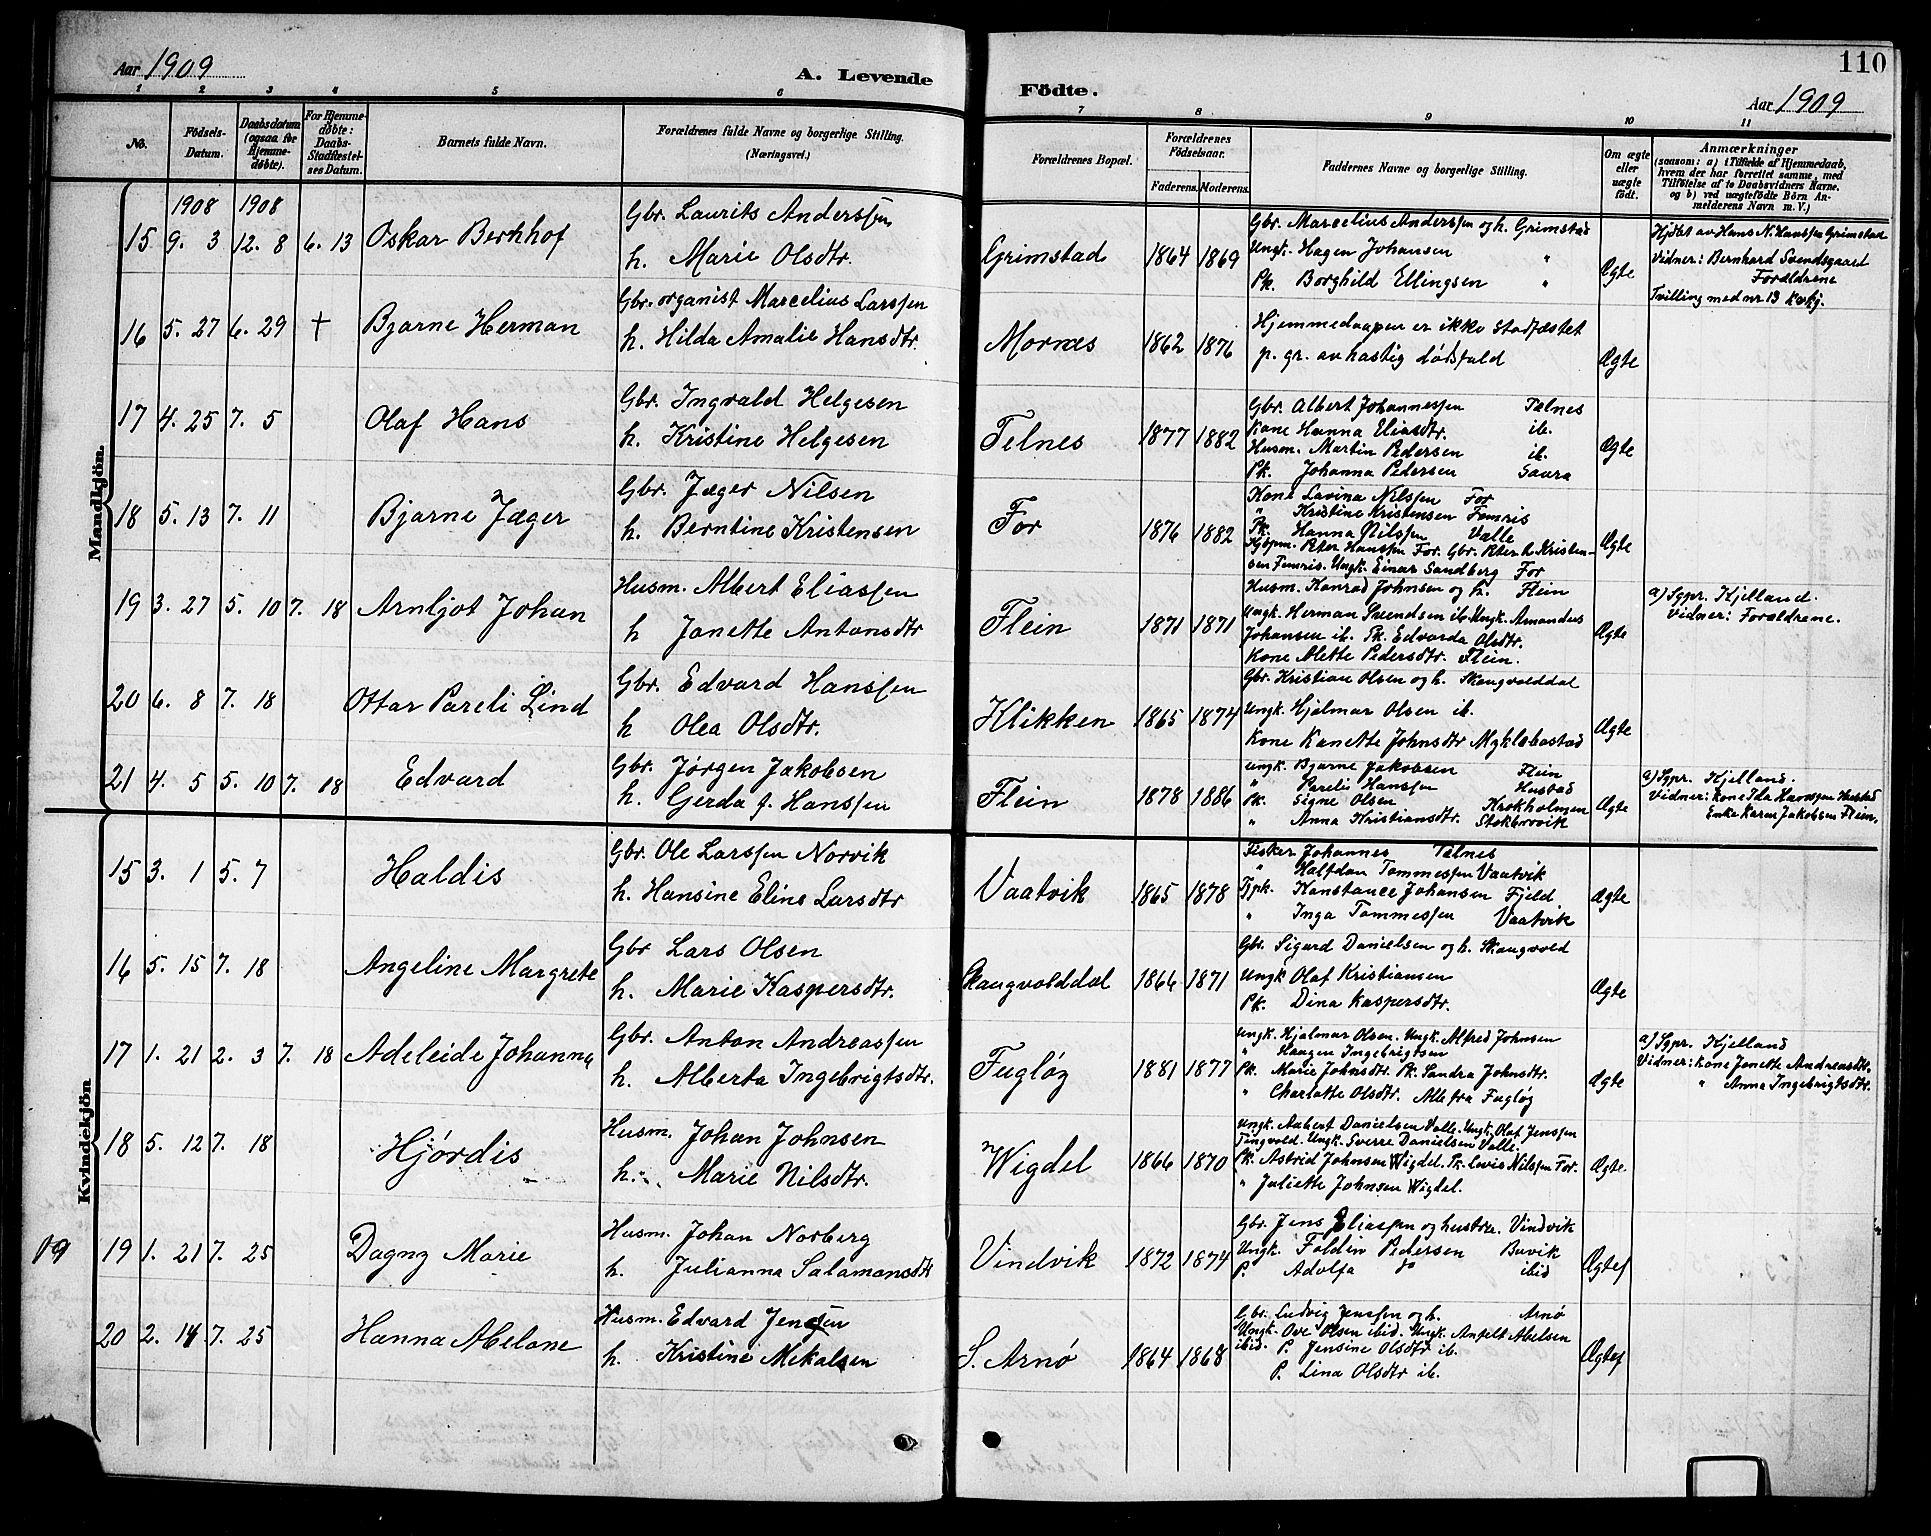 Aar 1909
A. Levende
Födte.
Aar 1909
110
1 2 3 4 5 6 7 8 9 10 11
No.
Födsels-Datum.
Daabsdatum (ogsaa for Hjemmedöbte).
For Hjemmedöbte: Daabs-Stadfæstelses Datum.
Barnets fulde Navn.
Forældrenes fulde Navne og borgerlige Stilling. (Næringsvei.)
Forældrenes Bopæl.
Forældrenes Födselsaar.
Faderens. Moderens.
Faddernes Navne og borgerlige Stilling.
Om ægte eller uægte födt.
Anmærkninger
(saasom: a) i Tilfælde af Hjemmedaab, hvem der har forrettet samme, med Tilföielse af to Daabsvidners Navne, og b) ved uægtefödte Börn Anmelderens Navn m. V.)
Mandkjön.
1908 1908
15 9. 3 12. 8 6. 13 Oskar Berhhof
Gbr. Laurits Anderssen
h. Marie Olsdtr.
Grimstad 1864 1869
Gbr. Marcelius Anderssen og h. Grimstad
Ungk. Hagen Johansen "
Pk. Borghild Ellingsen "
Ægte
Hjdbt av Hans N. Hanssen Grimstad
Vidner: Bernhard Svendsgaard
Forældrene
16 5. 27 6. 29 † Bjarne Herman
Gbr. organist Marcelius Larssen
h. Hilda Amalie Hansdtr.
Mornes 1862 1876
Hjemmedaapen er ikke stadfæstet
p. gr. av hastig dødsfald
Ægte
Tvilling med nr 13 kvkj.
17 4. 25 7. 5 Olaf Hans
Gbr. Ingvald Helgesen
h. Kristine Helgesen
Telnes 1877 1882
Gbr. Albert Johannessen Telnes
Kone Hanna Eliasdtr. ib.
Husm. Martin Pedersen ib.
Pk. Johanna Pedersen Saura
Ægte
18 5. 13 7. 11 Bjarne Jæger
Gbr. Jæger Nilsen
h. Berntine Kristensen
For 1876 1882
Kone Lavina Nilssen For
" Kristine Kristensen Femris
Pk. Hanna Nilssen Valle
Kjbpm. Peter Hanssen For. Gbr. Peter L. Kristen-
sen Femris. Ungk. Einar Sandberg For
Ægte
19 3. 27 5. 10 7. 18 Arnljot Johan
Husm. Albert Eliassen
h Janette Antonsdtr
Flein 1871 1871
Husm. Konrad Johnsen og h. Flein
Ungk. Herman Svendsen ib. Ungk. Amandus
Johansen ib. Pk. Edvarda Olsdtr.
Kone Alette Pedersdtr. Flein.
Ægte
a) Sgpr. Kjelland.
Vidner: Forældrene.
20 6. 8 7. 18 Ottar Pareli Lind
Gbr. Edvard Hanssen
h Olea Olsdtr.
Klikken 1865 1874
Gbr. Kristian Olsen og h. Skaugvolddal
Ungk. Hjalmar Olsen ib.
Kone Kanette Johnsdtr Myklebostad
Ægte
21 4. 5 5. 10 7. 18 Edvard
Gbr. Jørgen Jakobsen
h. Gerda J. Hanssen
Flein 1878 1886
Ungk. Bjarne Jakobsen Flein
" Parelis Hanssen Hustad
Pk. Signe Olsen Krokholmen
" Anna Kristiansdtr.
Ægte
a) Sgpr. Kjelland.
Vidner: Kone Ida Hanssen Hustad
Enke Karen Jakobsen Flein.
Kvindekjön
15 3. 1 5. 7 Haldis
Gbr. Ole Larssen Norvik
h. Hansine Eline Larsdtr
Vaatvik 1865 1878
Fisker Johannes Telnes
" Halfdan Tommessen Vaatvik
Tjpk. Konstance Johansen Fjeld
" Inga Tommessen Vaatvik
Ægte
16 5. 15 7. 18 Angeline Margrete
Gbr Lars Olsen
h. Marie Kaspersdtr.
Skaugvolddal 1866 1871
Gbr. Sigurd Danielsen og h. Skaugvold
Ungk Olaf Kristiansen
Pk. Dina Kaspersdtr.
Ægte
17 1. 21 2. 3 7. 18 Adeleide Johanna
Gbr. Anton Andreassen
h. Alberta Ingebrigtsdtr.
Fugløy 1881 1877
Ungk. Hjalmar Olsen. Ungk. Alfred Johnsen
" Haagen Ingebrigtsen
Pk. Marie Johnsdtr. Pk. Sandra Johnsdtr.
" Charlotte Olsdtr. Alle fra Fugløy
Ægte
a) Sgpr. Kjelland
Vidner: Kone Janette Andreasdtr.
" Anna Ingebrigtsdtr.
18 5. 12 7. 18 Hjørdis
Husm. Johan Johnsen
h. Marie Nilsdtr.
Wigdel 1866 1870
Ungk. Aabert Danielsen Valle. Ungk. Olaf Jenssen
Tingvold. Ungk. Sverre Danielsen Valle.
Pk. Astrid Johnsen Wigdel. Pk. Lovise Nilssen For.
" Juliette Johnsen Wigdel.
Ægte
09 19 1. 21 7. 25 Dagny Marie
Husm. Johan Norberg
h. Julianna Salamonsdtr
Vindvik 1872 1874
Gbr. Jens Eliassen og hustru. Vindvik
Ungk. Foldin Pedersen Buvik
P. Adolfa do ibid
Ægtef
20 2. 14 7. 25 Hanna Abelone
Husm. Edvard Jenssen
h. Kristine Mekalsen
S. Arnø 1864 1868
Gbr. Ludvig Jenssen og h. Arnø
Ungk. Ove Olsen ibid. Ungk. Anfelt Abelsen
ibid. P. Jensine Olsdtr ib.
P. Lina Olsdtr ib.
Ægtef